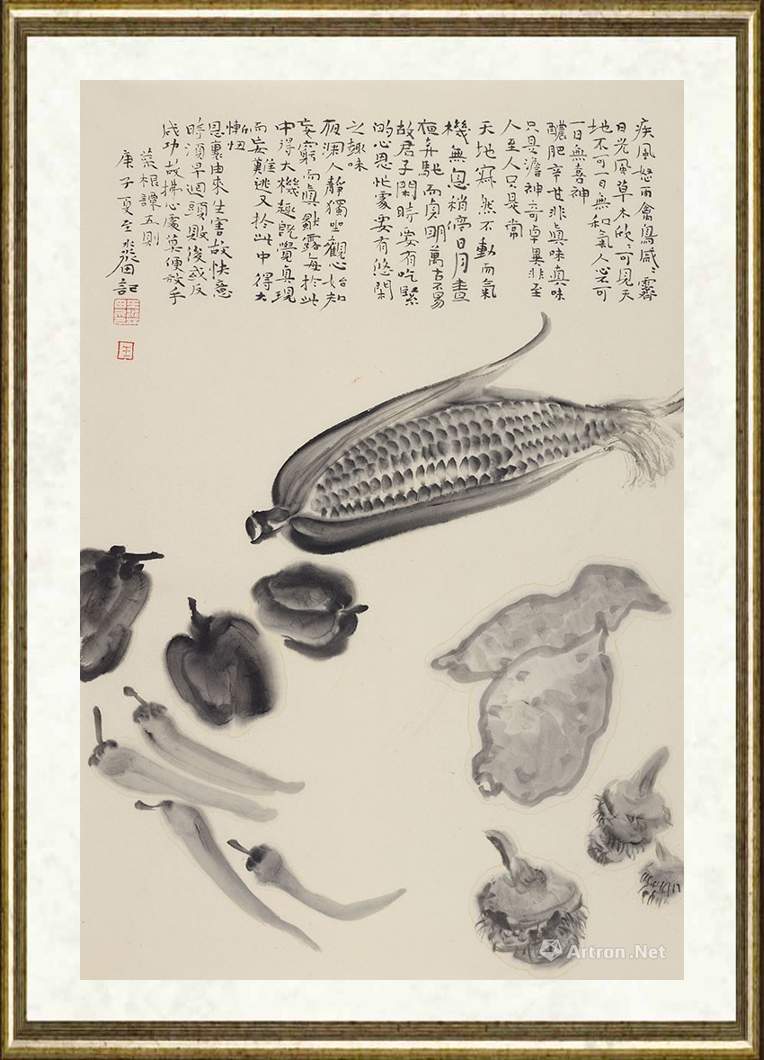 疾風怒雨禽鳥戚〻霽
日光風草木欣〻可見天
地不可一日無和氣人心不可
一日無喜神
醲肥辛甘非真味真味
只是澹神奇卓異非至
人至人只是常
天地寂然不動而氣
機無息稍停日月晝
夜奔馳而貞明萬古不易
故君子閒時要有吃緊
的心思忙處要有悠閒
之趣味
夜瀾人靜獨坐觀心始知
妄窮而真露每於此
中得大機趣既覺真現
而妄難逃又於此中得大
慚忸
恩裏由來生害故快意
時須早迴頭敗後或反
成功故拂心處莫便放手
菜根譚五則
庚子夏至記
Artron.Net